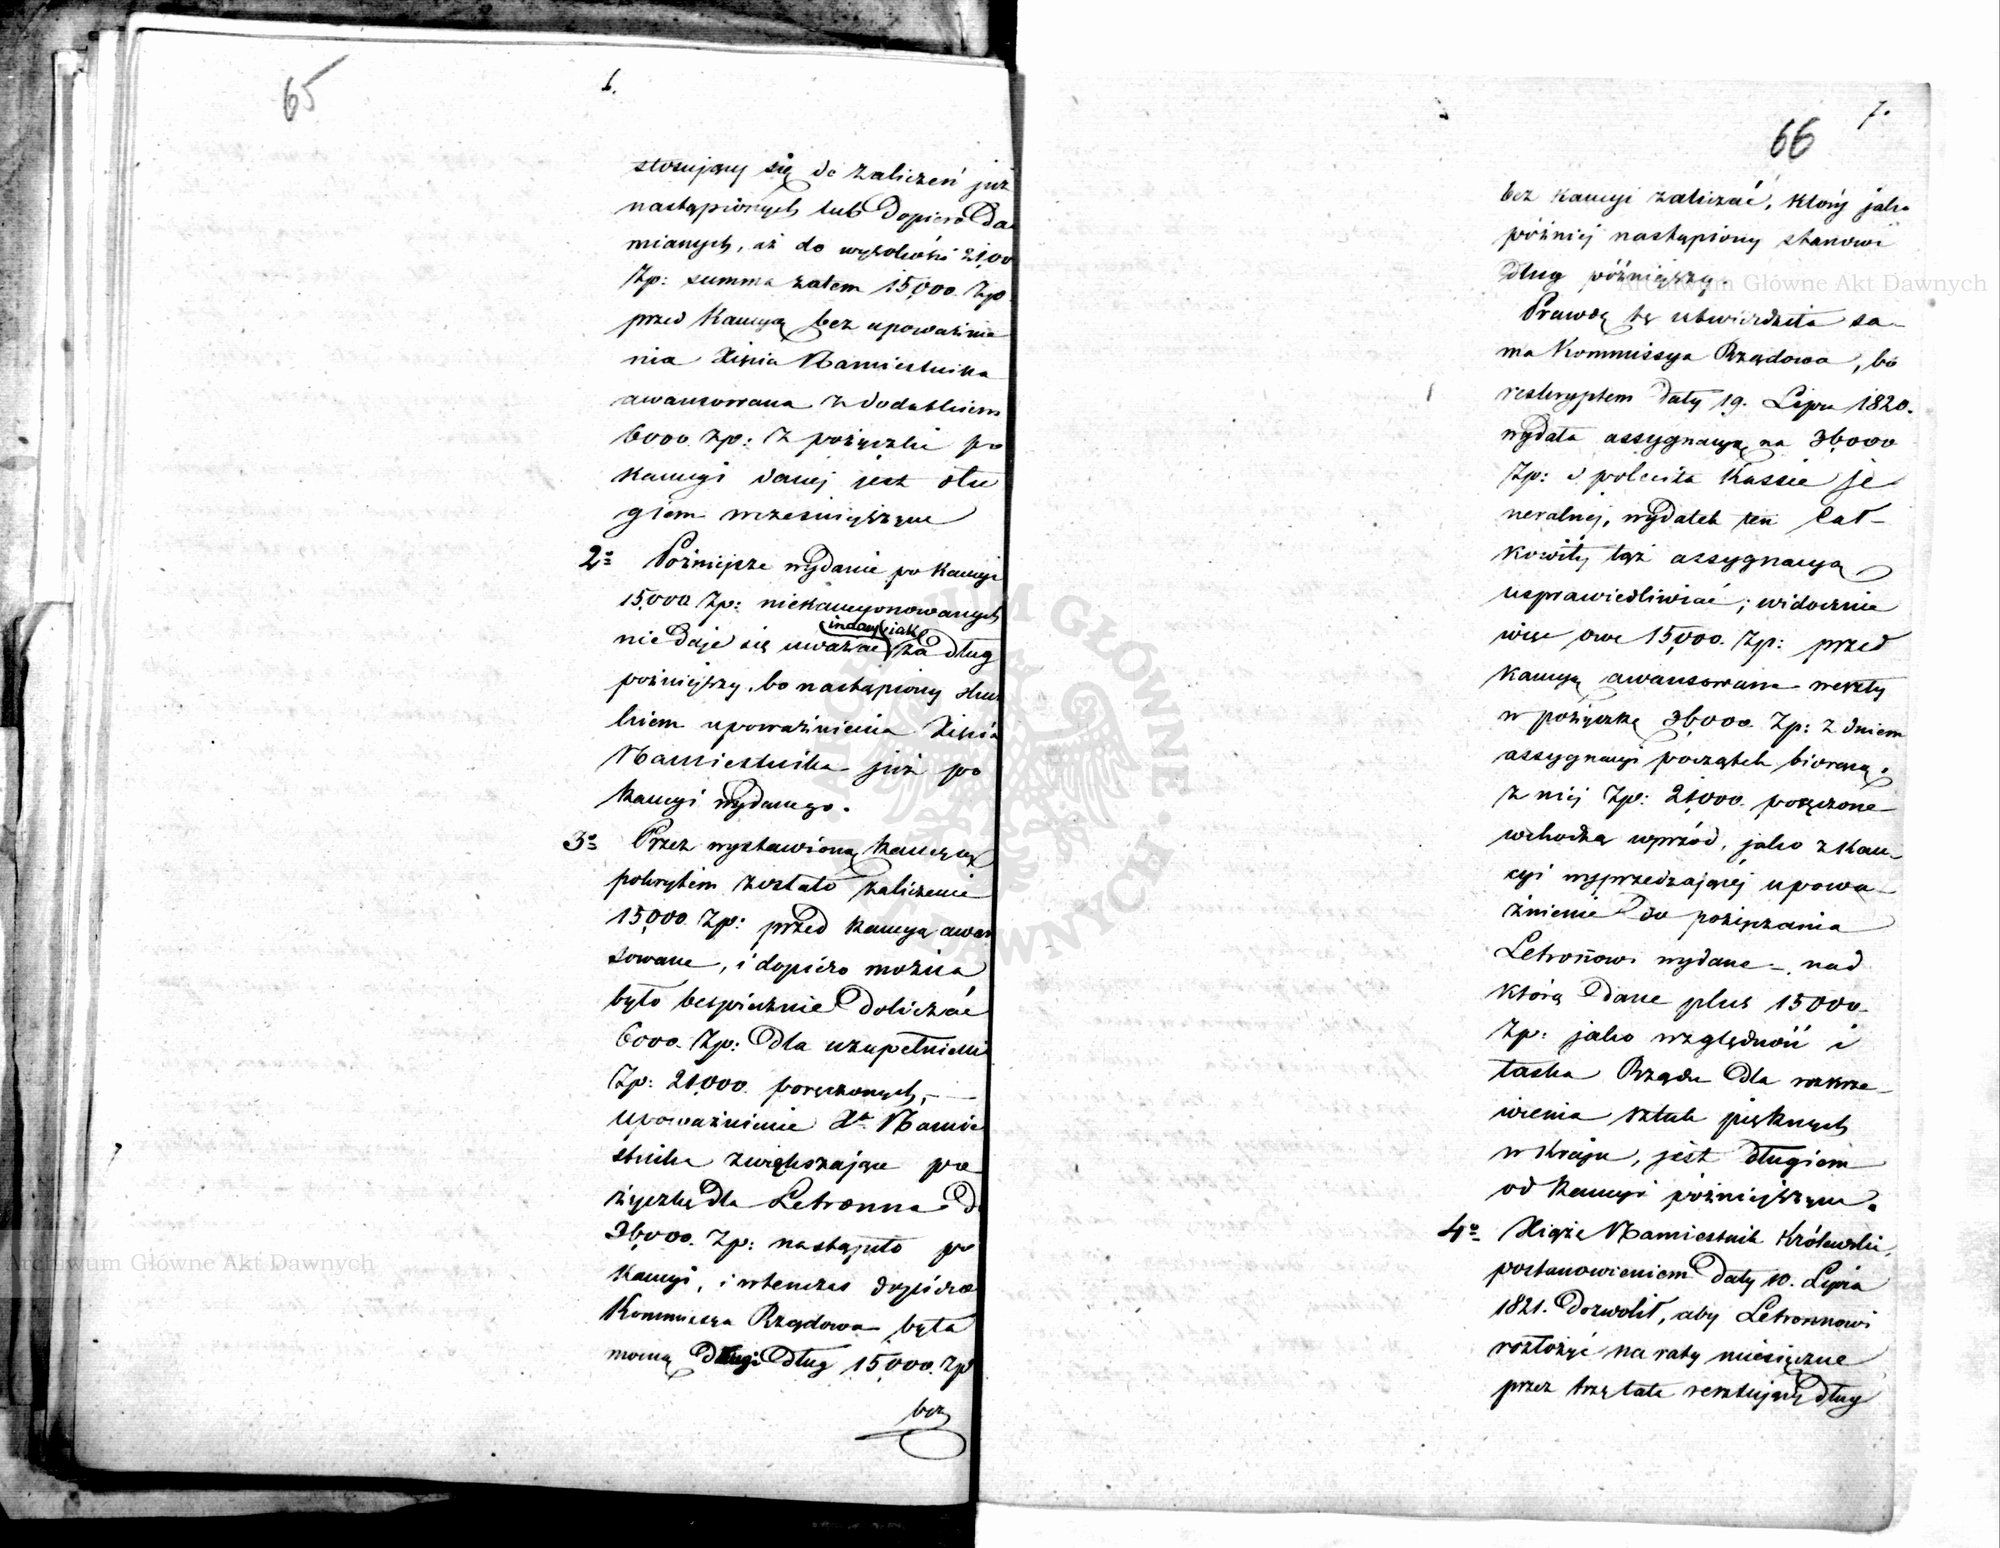 65
6.
stosujący się do zaliczeń już
nastąpionych lub dopiero da
mianych, aż do wysokości 21,00
Zp: summa zatem 15,000. Zp
przed Kaucyą bez upoważnie
nia Xięcia Namiestnika
awansowana z dodatkiem
6000. Zp: z pożyczki po
kaucyi danej jest dłu
giem wcześniejszym
2o Poźniejsze wydanie po kaucyi
15,000 Zp: niekaucyonowanych
nie daje się uważać (inaczej jak) za dług
poźniejszy, bo nastąpiony sku
tkiem upoważnienia Xięcia
Namiestnika już po
kaucyi wydanego.
3o Przez wystawioną kaucyą
pokrytem zostało zaliczenie
15,000. Zp: przed kaucyą awan
sowane, i dopiero można
było bespiecznie doliczać
6000. Zp: dla uzupełnieni
Zp: 21,000. poręczonych, —
upoważnienie Xa Namie
stnika zwiększające po
życzkę dla Letronna d
36,000. Zp: nastąpiło po
Kaucyi, i wtenczas dopiero
Kommissya Rządowa była
mocną dług 15,000. Zp
bez
66
7.
bez kaucyi zaliczać, który jako
później nastąpiony stanowi
dług późniejszy.
Prawdę tę utwierdziła sa-
ma Kommissya Rządowa, bo
reskryptem daty 19. Lipca 1820.
wydała assygnacyą na 36,000
Zp: i poleciła Kassie je
neralnej, wydatek ten cał-
kowity tąż assygnacyą
usprawiedliwiać; widocznie
więc owe 15,000. Zp: przed
kaucyą awansowane weszły
w pożyczkę 36,000. Zp: z dniem
assygnacyi początek biorącą.
z niej Zp: 21,000. poręczone
wchodzą wprzód, jako z kau-
cyi wyprzedzającej upowa-
żnienie do pożyczania
Letronowi wydane —, nad
którą dane plus 15000.
Zp: jako wzgledność i
łaska Rządu dla rozkrze-
wienia sztuk pięknych
w kraju, jest długiem
od kaucyi późniejszym.
4o Xiąże Namiestnik Królewski,
postanowieniem daty 10. Lipca
1821. dozwolił, aby Letronnowi
rozłożyć na raty miesięczne
przez trzy lata resztujący dług
Archiwum Główne Akt Dawnych
Archiwum Główne Akt Dawnych
ARCHIWUM GŁÓWNE AKT DAWNYCH